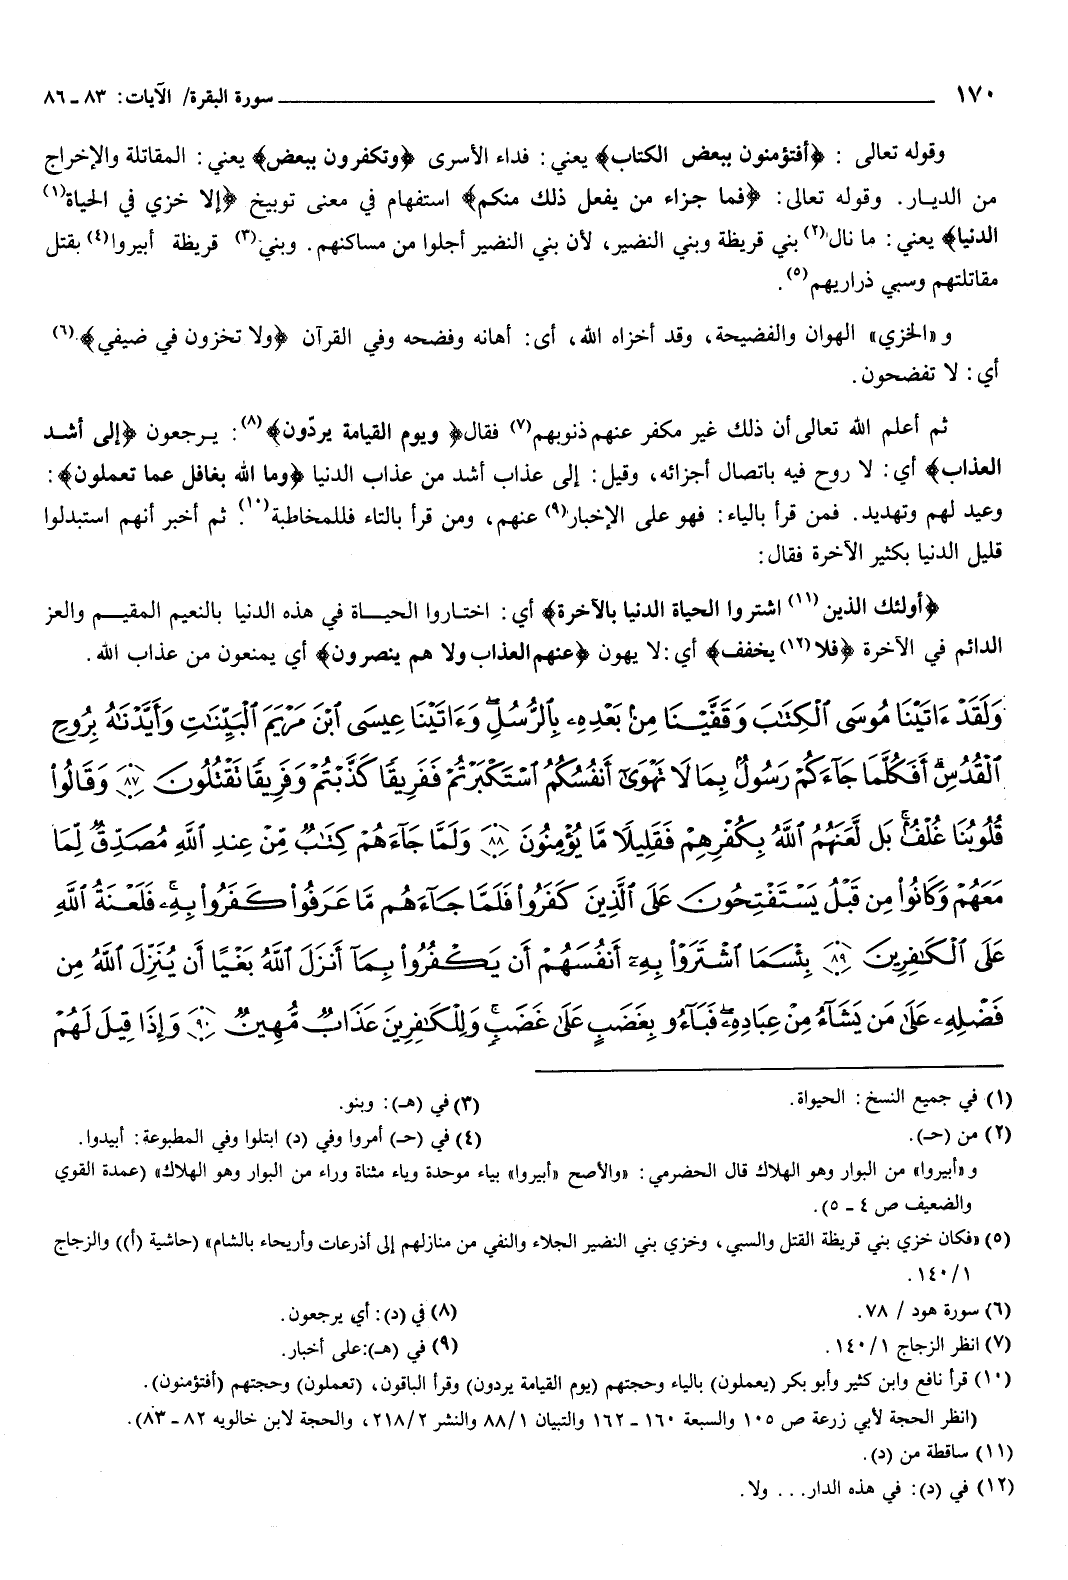 ١٧٠ سورة البقرة/ الآيات: ٨٣ ـ ٨٦
وقوله تعالى : ﴿أفتؤمنون ببعض الكتاب﴾ يعني: فداء الأسرى ﴿وتكفرون ببعض﴾ يعني: المقاتلة والإخراج
من الديار. وقوله تعالى: ﴿فما جزاء من يفعل ذلك منكم﴾ استفهام في معنى توبيخ ﴿إلا خزي في الحياة(١)
الدنيا﴾ يعني: ما نال(٢) بني قريظة وبني النضير، لأن بني النضير أجلوا من مساكنهم. وبني(٣) قريظة أبيروا(٤) بقتل
مقاتلتهم وسبي ذراريهم(٥).
و «الخزي» الهوان والفضيحة، وقد أخزاه الله، أى: أهانه وفضحه وفي القرآن ﴿ولا تخزون في ضيفي﴾(٦)
أي: لا تفضحون.
ثم أعلم الله تعالى أن ذلك غير مكفر عنهم ذنوبهم(٧) فقال﴿ ويوم القيامة يردّون﴾(٨): يرجعون ﴿إلى أشد
العذاب﴾ أي: لا روح فيه باتصال أجزائه، وقيل: إلى عذاب أشد من عذاب الدنيا ﴿وما الله بغافل عما تعملون﴾:
وعيد لهم وتهديد. فمن قرأ بالياء: فهو على الإخبار(٩) عنهم، ومن قرأ بالتاء فللمخاطبة(١٠). ثم أخبر أنهم استبدلوا
قليل الدنيا بكثير الآخرة فقال:
﴿أولئك الذين(١١) اشتروا الحياة الدنيا بالآخرة﴾ أي: اختاروا الحياة في هذه الدنيا بالنعيم المقيم والعز
الدائم في الآخرة ﴿فلا(١٢) يخفف﴾ أي: لا يهون ﴿عنهم العذاب ولا هم ينصرون﴾ أي يمنعون من عذاب الله.
وَلَقَدْ ءَاتَيْنَا مُوسَى ٱلْكِتَٰبَ وَقَفَّيْنَا مِنۢ بَعْدِهِۦ بِٱلرُّسُلِۖ وَءَاتَيْنَا عِيسَى ٱبْنَ مَرْيَمَ ٱلْبَيِّنَٰتِ وَأَيَّدْنَٰهُ بِرُوحِ
ٱلْقُدُسِۗ أَفَكُلَّمَا جَآءَكُمْ رَسُولٌۢ بِمَا لَا تَهْوَىٰٓ أَنفُسُكُمُ ٱسْتَكْبَرْتُمْ فَفَرِيقًا كَذَّبْتُمْ وَفَرِيقًا تَقْتُلُونَ ٨٧ وَقَالُوا۟
قُلُوبُنَا غُلْفٌۢۚ بَل لَّعَنَهُمُ ٱللَّهُ بِكُفْرِهِمْ فَقَلِيلًا مَّا يُؤْمِنُونَ ٨٨ وَلَمَّا جَآءَهُمْ كِتَٰبٌ مِّنْ عِندِ ٱللَّهِ مُصَدِّقٌ لِّمَا
مَعَهُمْ وَكَانُوا۟ مِن قَبْلُ يَسْتَفْتِحُونَ عَلَى ٱلَّذِينَ كَفَرُوا۟ فَلَمَّا جَآءَهُم مَّا عَرَفُوا۟ كَفَرُوا۟ بِهِۦۚ فَلَعْنَةُ ٱللَّهِ
عَلَى ٱلْكَٰفِرِينَ ٨٩ بِئْسَمَا ٱشْتَرَوْا۟ بِهِۦٓ أَنفُسَهُمْ أَن يَكْفُرُوا۟ بِمَآ أَنزَلَ ٱللَّهُ بَغْيًا أَن يُنَزِّلَ ٱللَّهُ مِن
فَضْلِهِۦ عَلَىٰ مَن يَشَآءُ مِنْ عِبَادِهِۦۖ فَبَآءُو بِغَضَبٍ عَلَىٰ غَضَبٍۚ وَلِلْكَٰفِرِينَ عَذَابٌ مُّهِينٌ ٩٠ وَإِذَا قِيلَ لَهُمْ
(١) في جميع النسخ: الحيواة. (٣) في (هـ): وبنو.
(٢) من (حـ). (٤) في (حـ) أمروا وفي (د) ابتلوا وفي المطبوعة: أبيدوا.
و «أبيروا» من البوار وهو الهلاك قال الحضرمي: «والأصح «أبيروا» بياء موحدة وياء مثناة وراء من البوار وهو الهلاك» (عمدة القوي
والضعيف ص ٤ ـ ٥).
(٥) «فكان خزي بني قريظة القتل والسبي، وخزي بني النضير الجلاء والنفي من منازلهم إلى أذرعات وأريحاء بالشام» (حاشية (أ)) والزجاج
١/١٤٠.
(٦) سورة هود / ٧٨. (٨) في (د): أي يرجعون.
(٧) انظر الزجاج ١/١٤٠. (٩) في (هـ): على أخبار.
(١٠) قرأ نافع وابن كثير وأبو بكر (يعملون) بالياء وحجتهم (يوم القيامة يردون) وقرأ الباقون، (تعملون) وحجتهم (أفتؤمنون).
(انظر الحجة لأبي زرعة ص ١٠٥ والسبعة ١٦٠ ـ ١٦٢ والتبيان ١/٨٨ والنشر ٢/٢١٨، والحجة لابن خالويه ٨٢ ـ ٨٣).
(١١) ساقطة من (د).
(١٢) في (د): في هذه الدار... ولا.